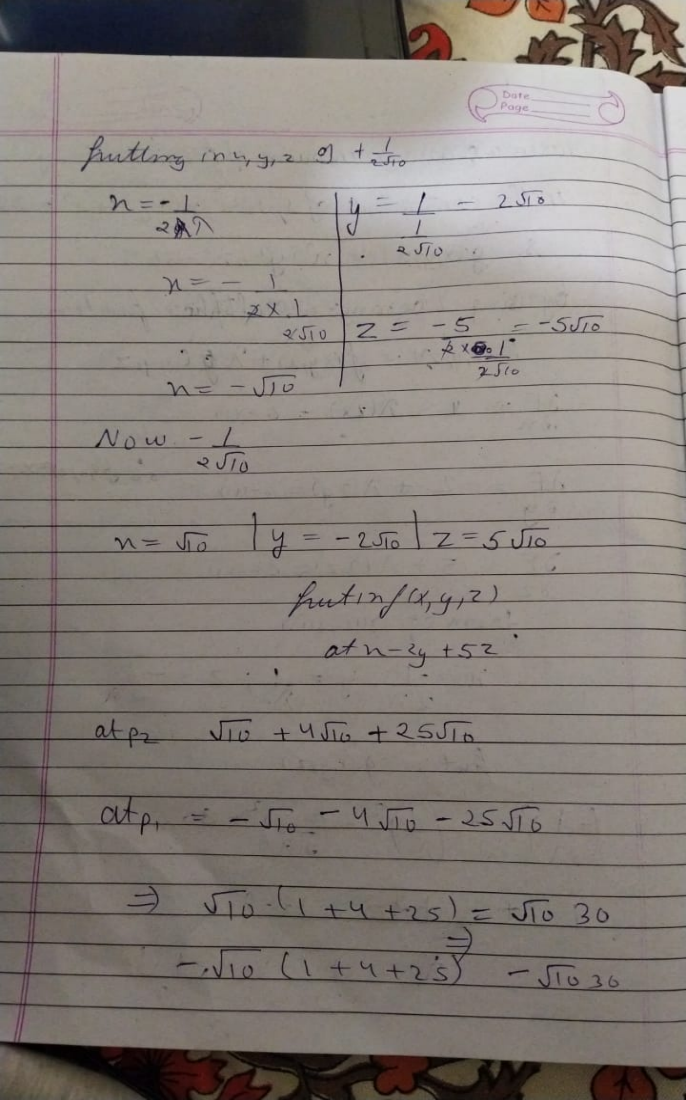 Date
Page
putting in x, y, z of + 1/2√10
x = -1/2λ
x = - 1/(2 × 1/2√10)
x = -√10
y = 1/(1/2√10) = 2√10
z = -5/(2 × 1/2√10) = -5√10
Now - 1/2√10
x = √10 | y = -2√10 | z = 5√10
put in f(x, y, z)
at x - 2y + 5z
at p2 √10 + 4√10 + 25√10
at p1 = -√10 - 4√10 - 25√10
⇒ √10 · (1 + 4 + 25) = √10 30
-√10 (1 + 4 + 25) ⇒ -√10 30